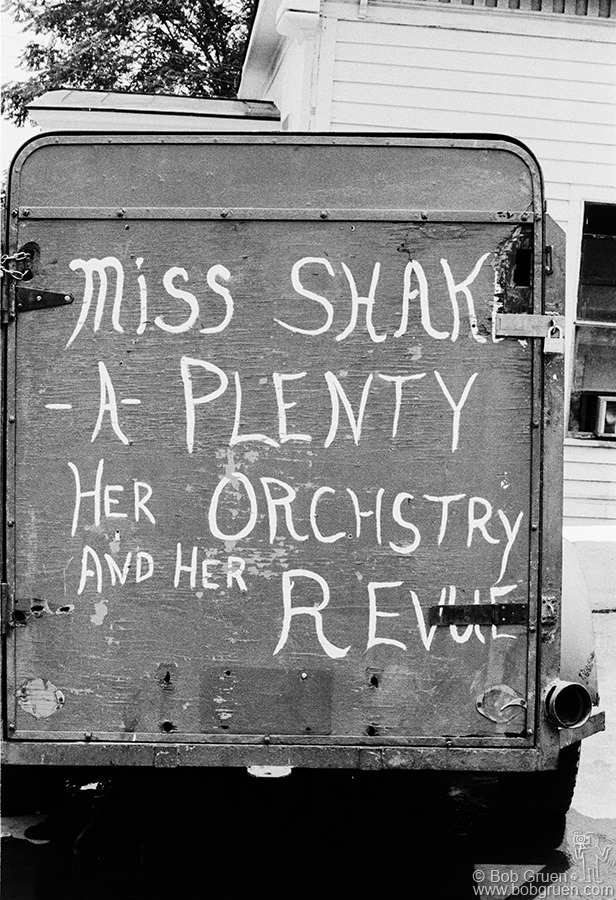 Miss SHAK
-A- PLENTY
HER ORCHSTRY
AND HER REVUE
© Bob Gruen
www.bobgruen.com